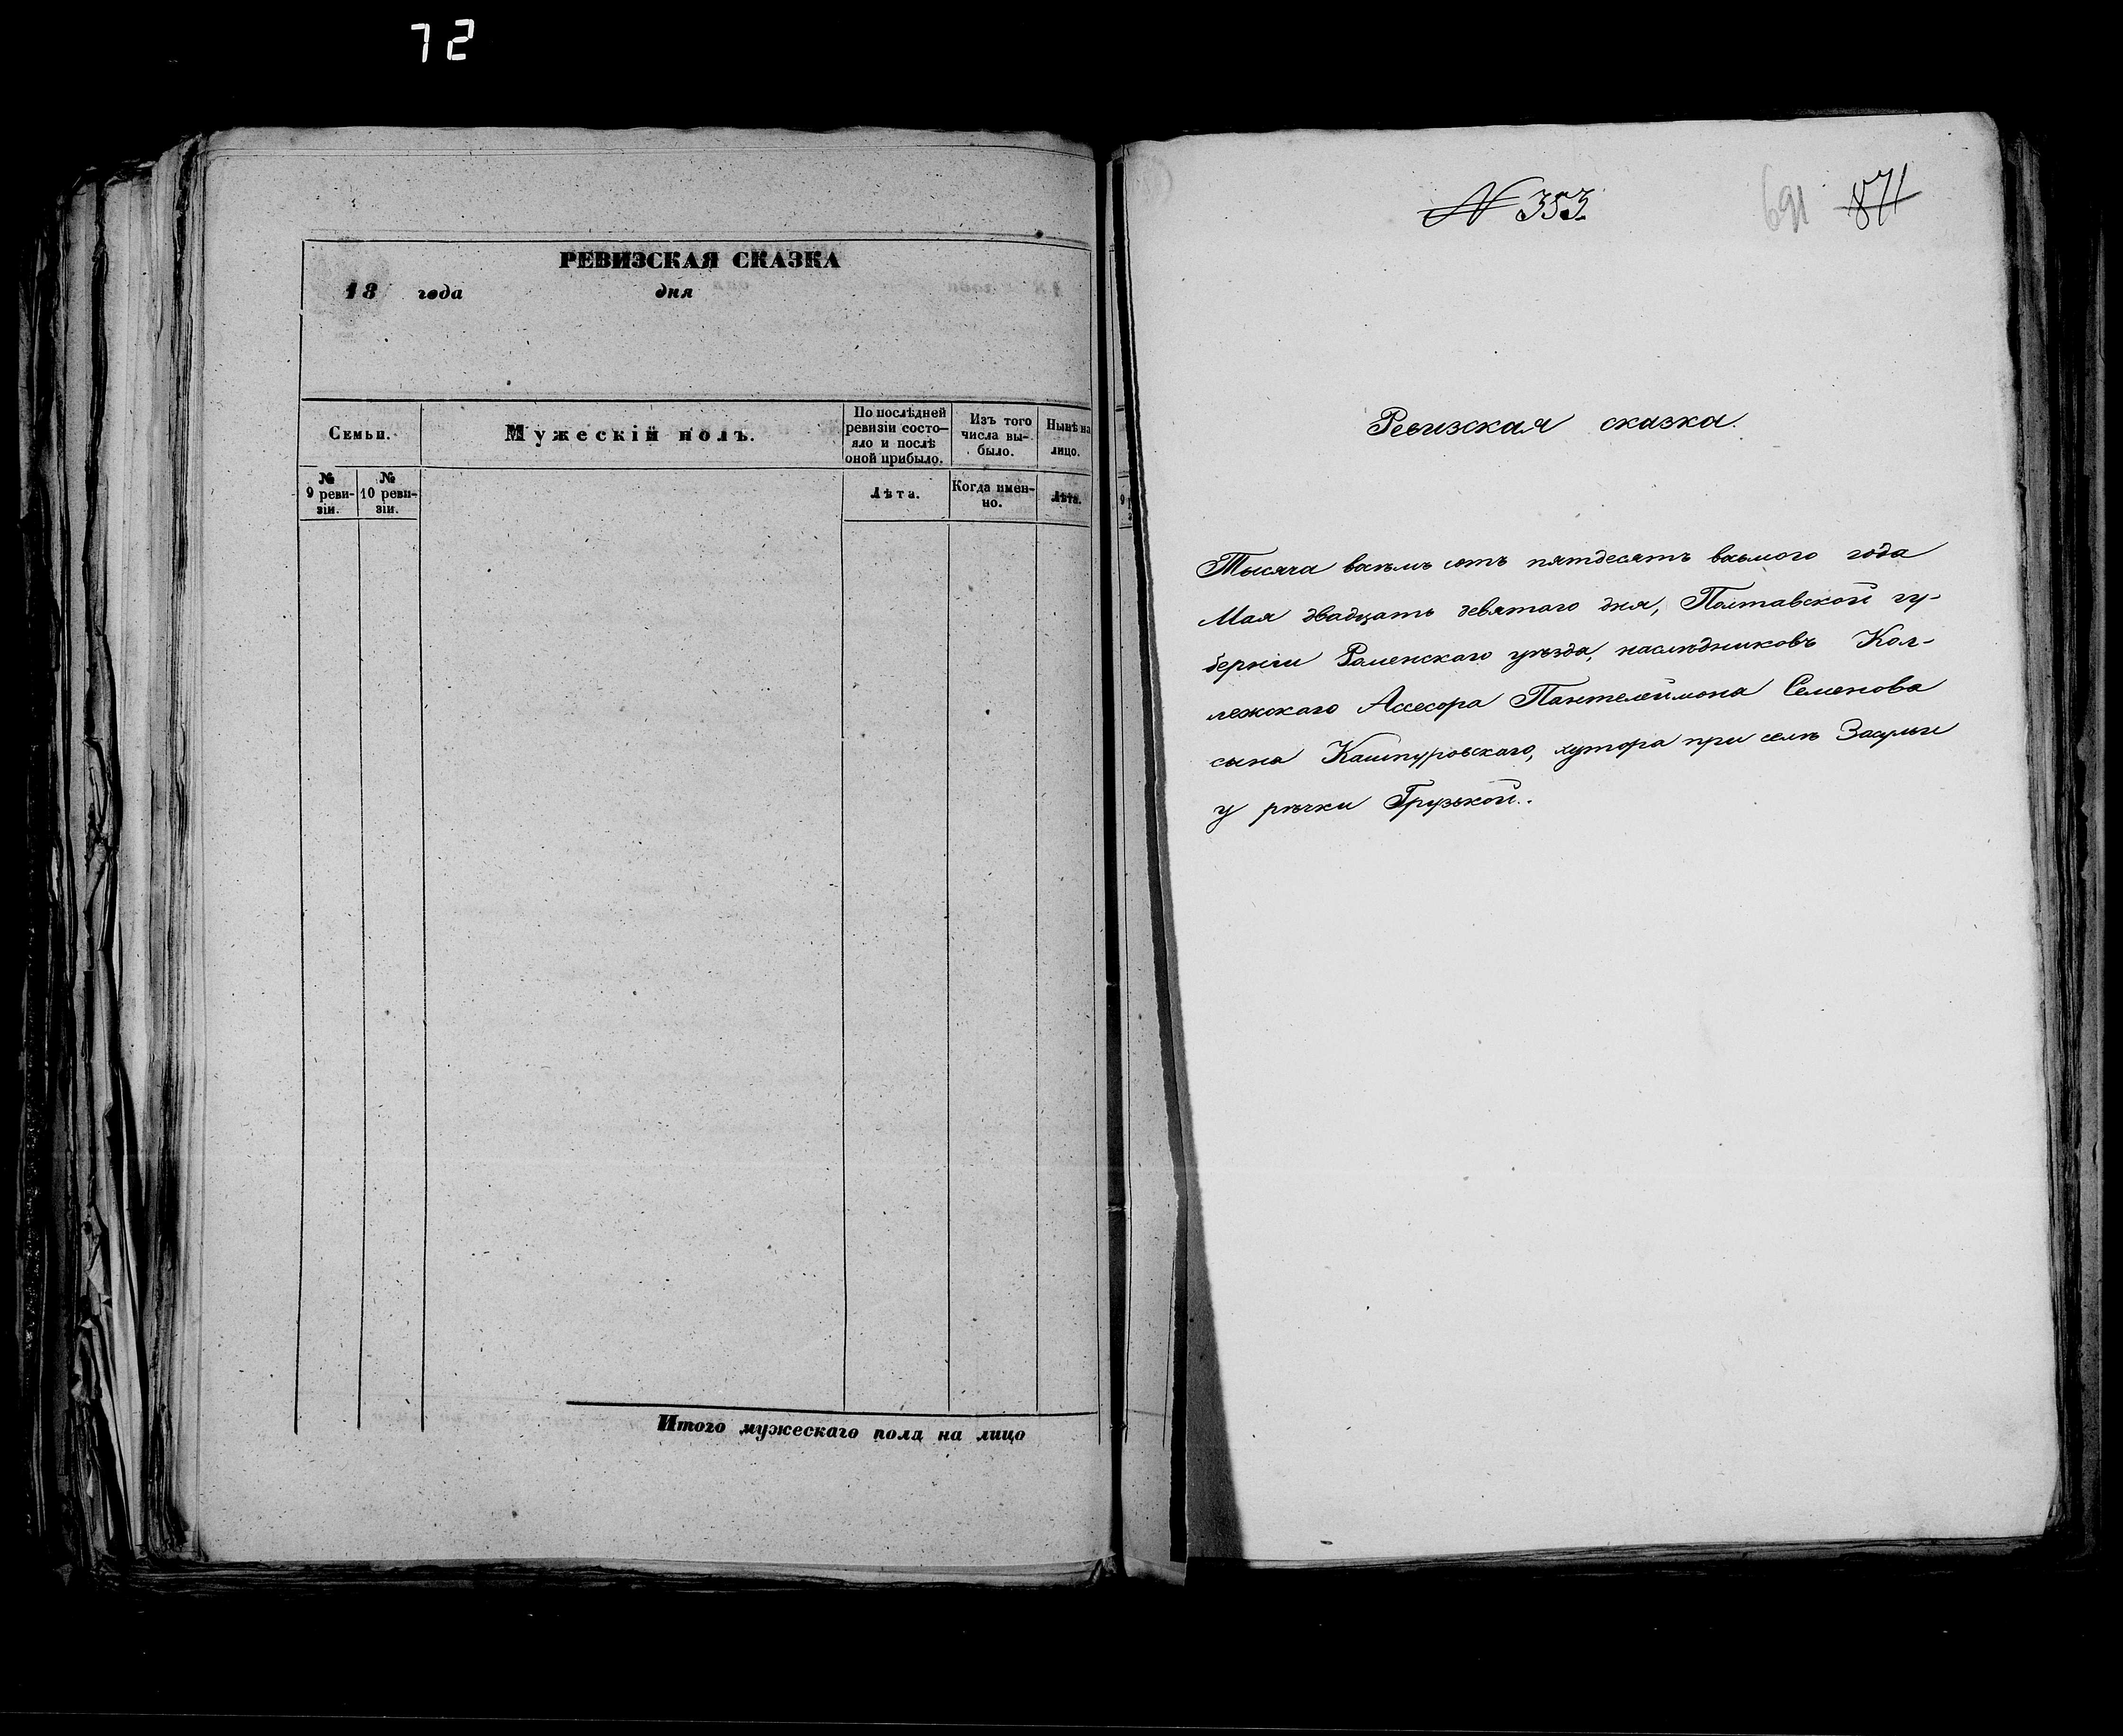 72
РЕВИЗСКАЯ СКАЗКА
18 года дня
Семьи.
Мужескій полъ.
По послѣдней ревизіи состо-
яло и послѣ оной прибыло.
Изъ того числа вы-
было.
Нынѣ на лицо.
№ 9 реви-
зіи.
№ 10 реви-
зіи.
Лѣта.
Когда имен-
но.
Лѣта.
Итого мужескаго пола на лицо
N 353.
691 871
Ревизская сказка.
Тысяча восемь сотъ пятдесятъ восьмого года
Мая двадцать девятаго дня, Полтавской гу-
берніи Роменскаго уѣзда, наслѣдниковъ Кол-
лежскаго Ассесора Пантелеймона Семенова
сына Кашпуровскаго, хутора при селѣ Засульи
у рѣчки Грузькой.